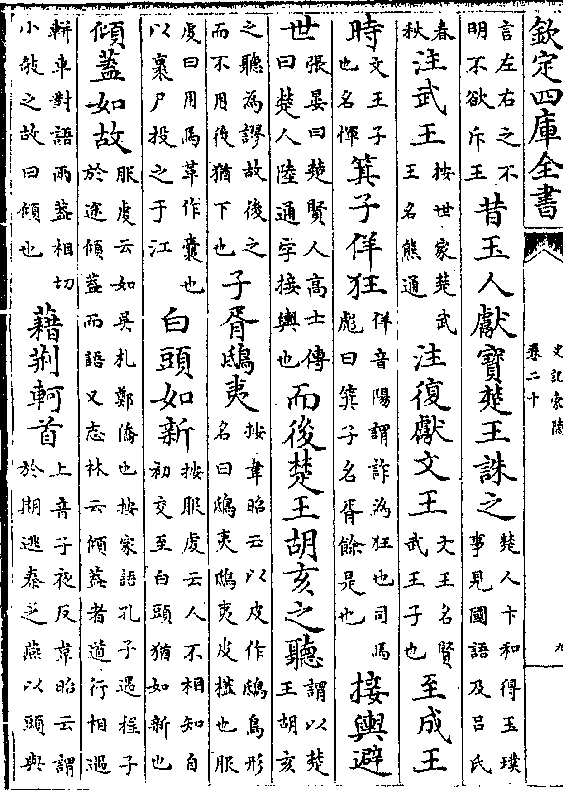 欽定四庫全書
史記索隱
卷二十
九
言左右之不
明不欲斥王
昔玉人獻寳楚王誅之
楚人卞和得玉璞
事見國語及吕氏
春
秋
注武王
按世家楚武
王名熊通
注復獻文王
文王名賢
武王子也
至成王
時
文王子
也名惲
箕子佯狂
佯音陽謂詐為狂也司馬
彪曰箕子名胥餘是也
接輿避
世
張晏曰楚賢人高士傳
曰楚人陸通字接輿也
而後楚王胡亥之聽
謂以楚
王胡亥
之聽為謬故後之
而不用後猶下也
子胥鴟夷
按韋昭云以皮作鴟鳥形
名曰鴟夷鴟夷皮榼也服
虔曰用馬革作囊也
以裹尸投之于江
白頭如新
按服虔云人不相知自
初交至白頭猶如新也
傾蓋如故
服虔云如吳札鄭僑也按家語孔子遇程子
於途傾蓋而語又志林云傾蓋者道行相遇
軿車對語兩蓋相切
小敧之故曰傾也
藉荆軻首
上音子夜反韋昭云謂
於期逃秦之燕以頭與